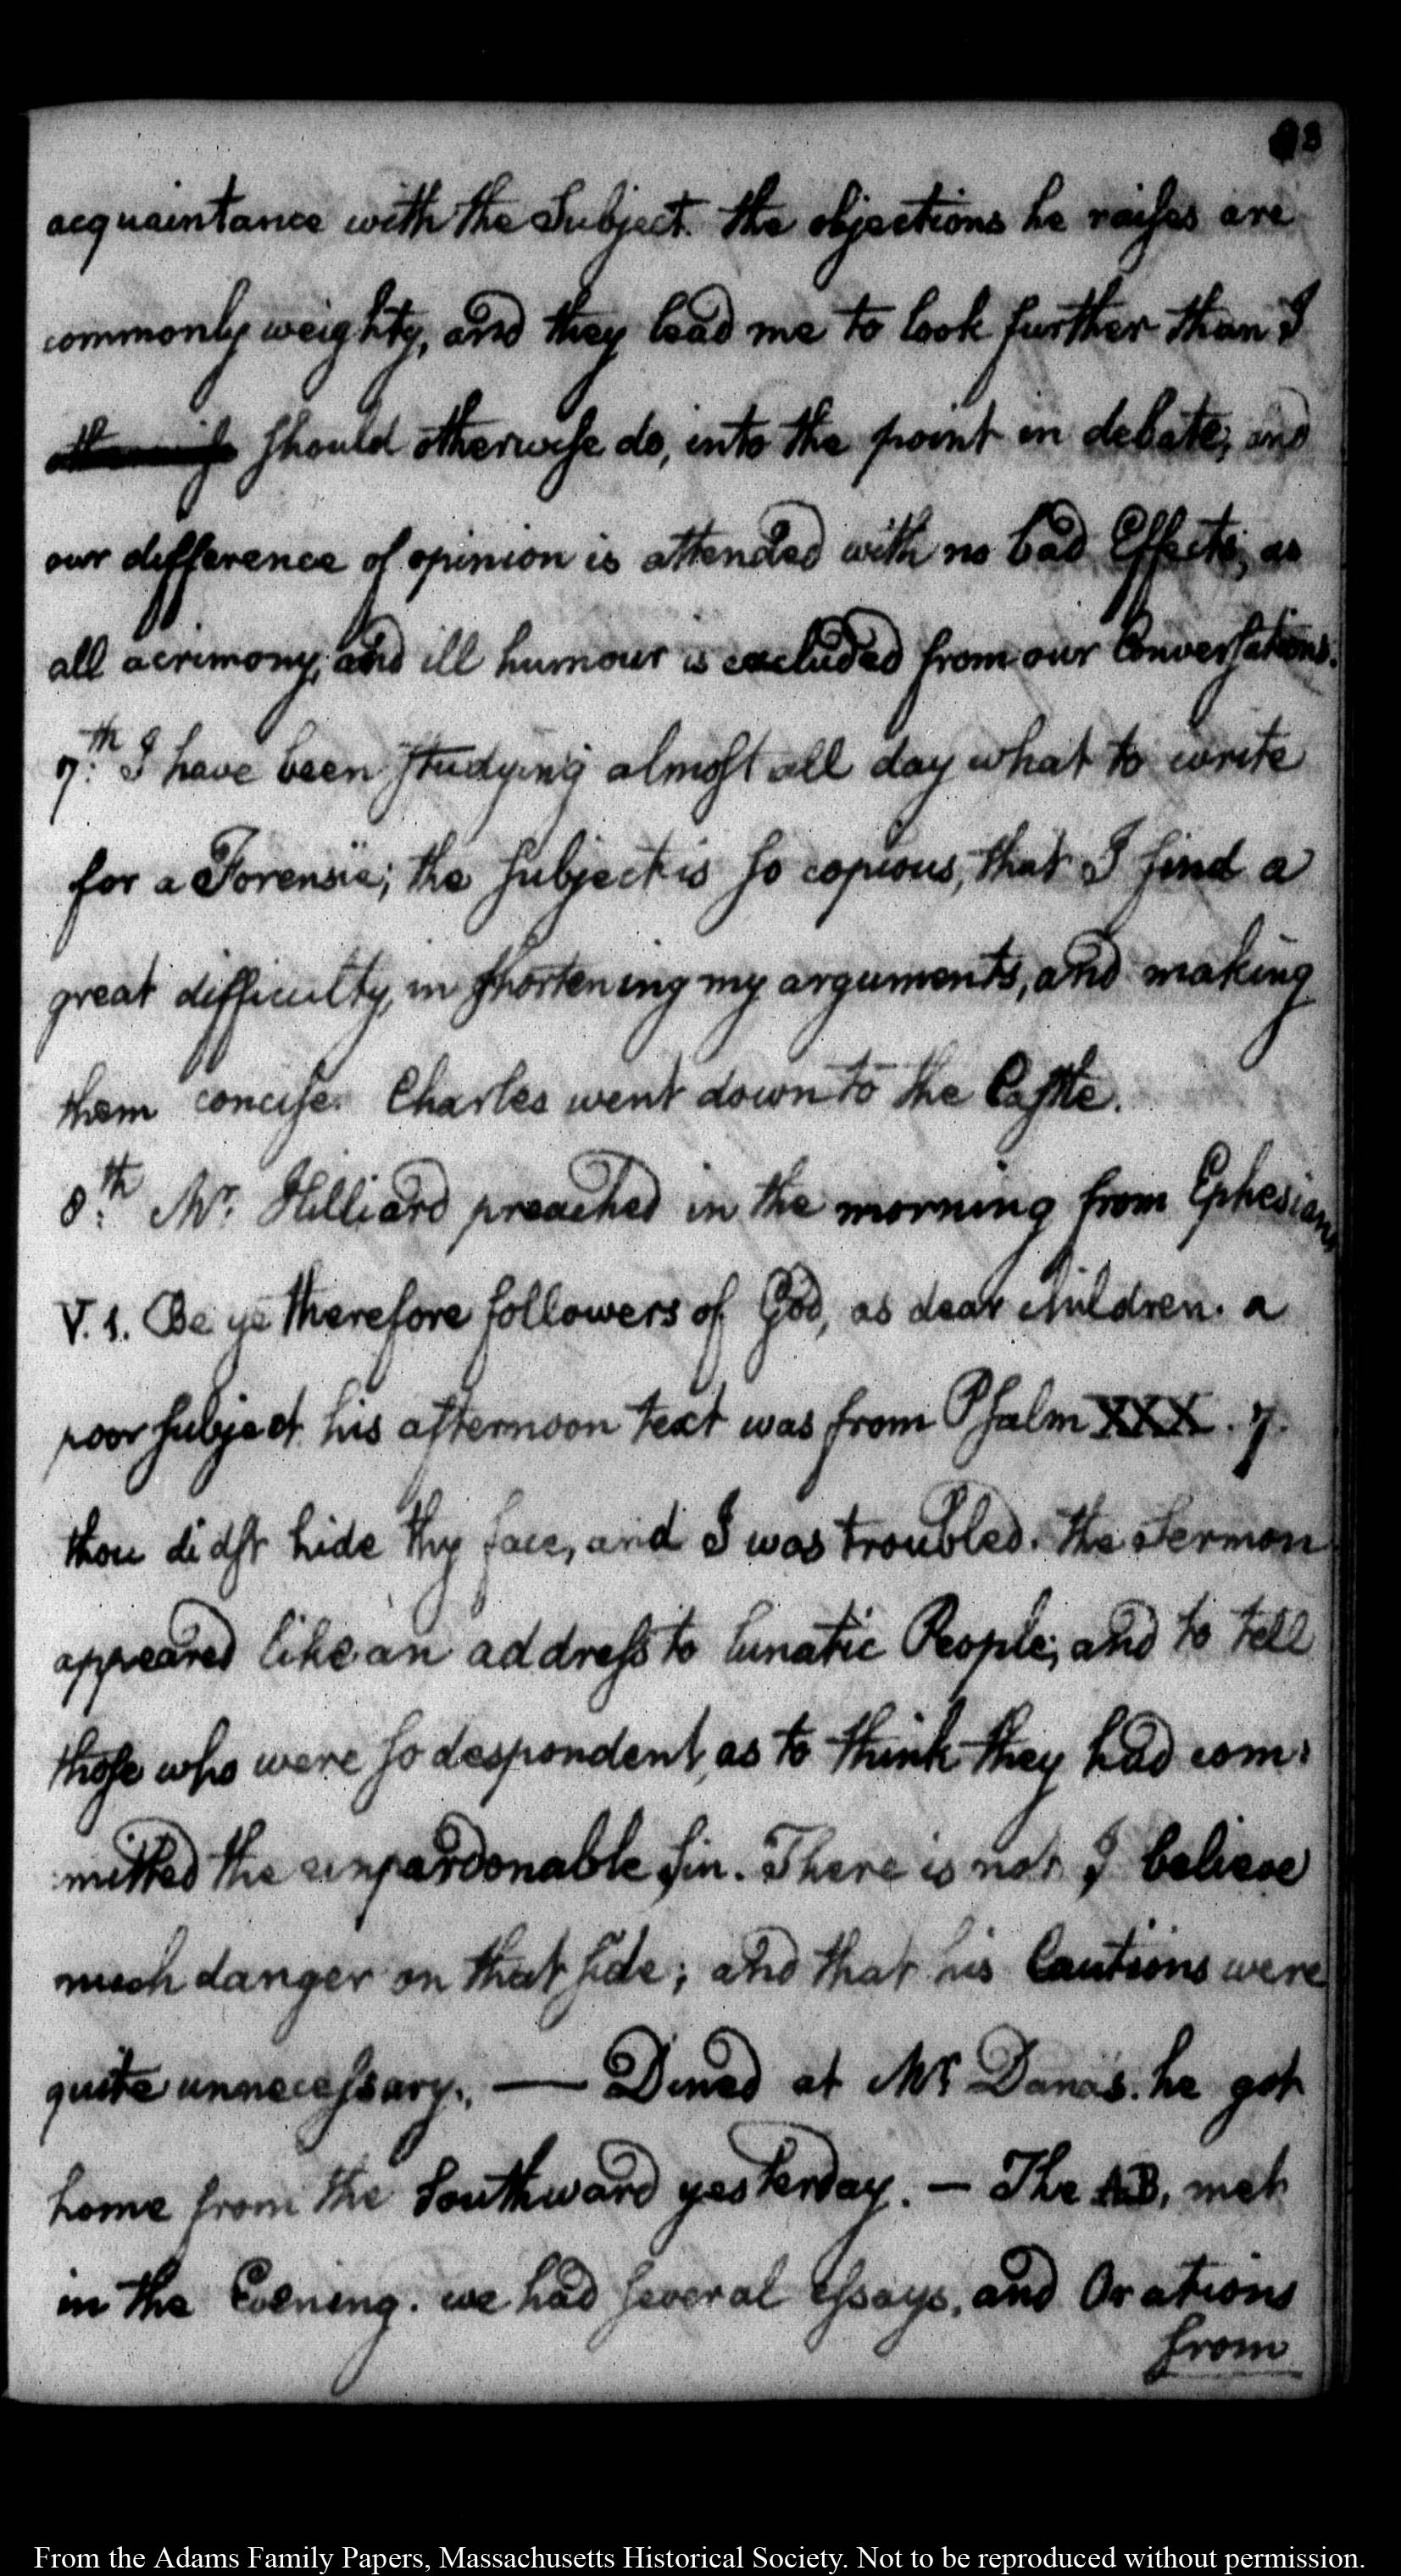 acquaintance with the Subject. the objections he raises are
commonly weighty, and they lead me to look further than I
should otherwise do, into the point in debate; and
our difference of opinion is attended with no bad Effects; as
all acrimony, and ill humour is excluded from our Conversations.
7.th I have been studying almost all day what to write
for a Forensic; the subject is so copious, that I find a
great difficulty, in shortening my arguments, and making
them concise. Charles went down to the Castle.
8.th Mr. Hilliard preached in the morning from Ephesians
V. 1. Be ye therefore followers of God, as dear children. a
poor subject. his afternoon text was from Psalm XXX. 7.
thou didst hide thy face, and I was troubled. the Sermon
appeared like an address to lunatic People; and to tell
those who were so despondent, as to think they had com:
:mitted the unpardonable sin. There is not I believe
much danger on that side; and that his Cautions were
quite unnecessary. — Dined at Mr. Dana's. he got
home from the Southward yesterday. — The AB, met
in the Evening. we had several essays, and Orations
from
From the Adams Family Papers, Massachusetts Historical Society. Not to be reproduced without permission.